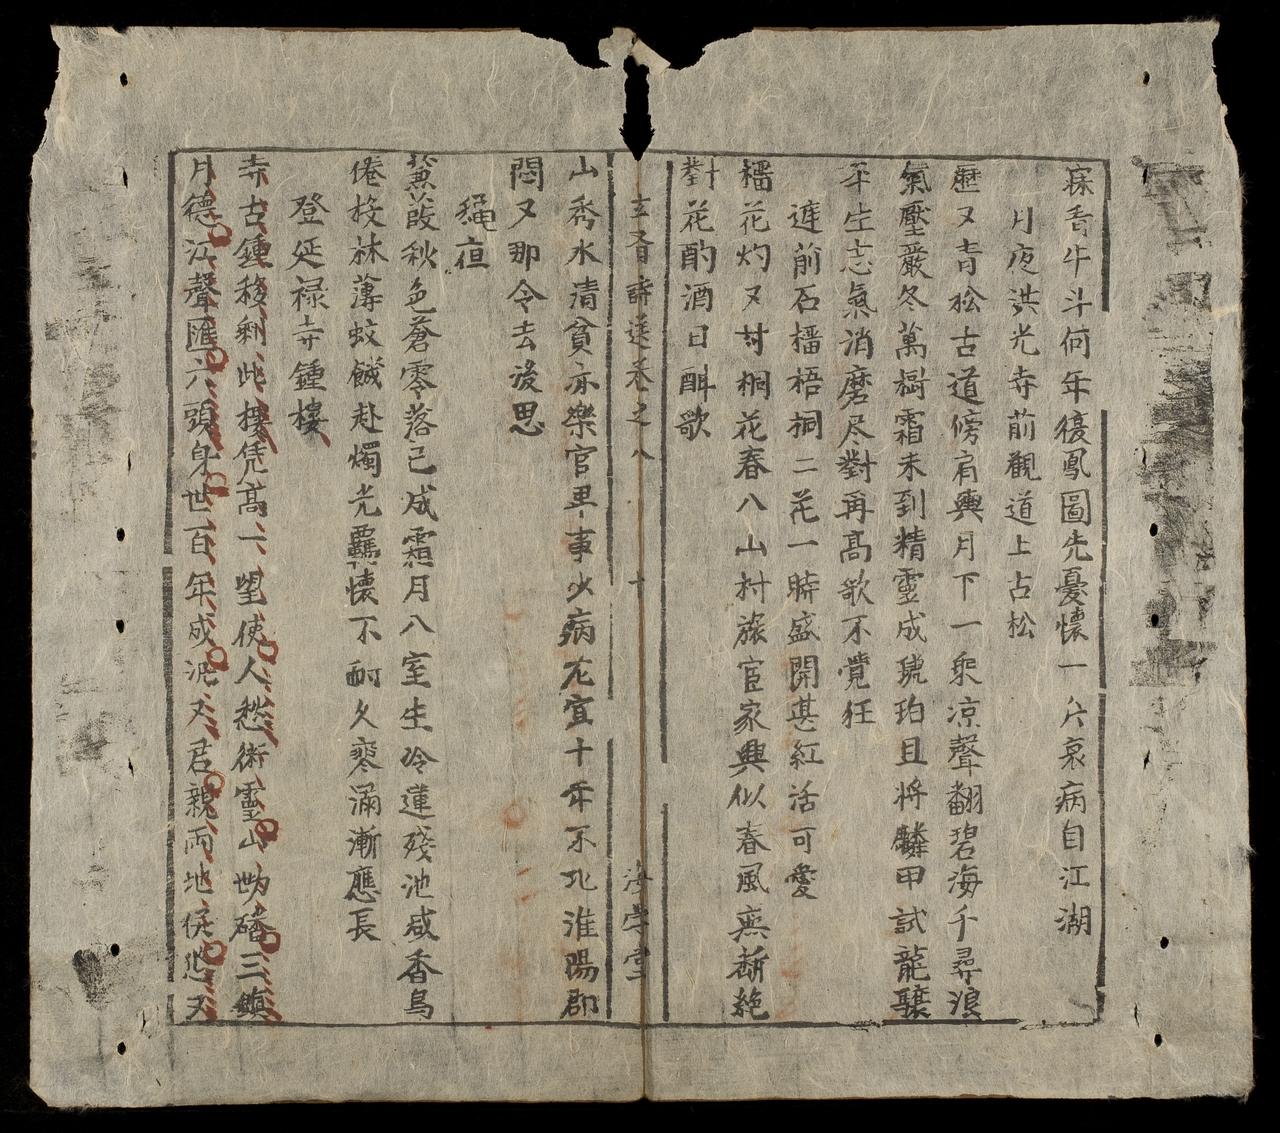 寐香牛斗何年復鳳圖先憂懷一片哀病自江湖
月夜洪光寺前觀道上古松
歷又青松古道傍肩輿月下一來凉聲翻碧海千尋浪
氣壓嚴冬萬樹霜未到精靈成琥珀且將麟甲試龍驤
平生志氣消磨尽對再髙歌不覺狂
遮前石榴梧桐二花一時盛開甚紅活可愛
榴花灼又对桐花春八山村旅宦家興似春風無斷絶
對花酌酒日酣歌
玄齋詩送卷之八 十 海学堂
山秀水清貧亦樂官卑事少病尤宜十年不化淮陽郡
悶又那令去後思
秋夜
蒹葭秋色蒼零落已成霜月入室生冷蓮殘池咸香鳥
倦枝林薄蚊饑赴燭光羈懷不耐久寒漏漸應長
登延禄寺鍾樓
寺古鍾移剩此樓凭髙一望使人愁術靈山勢磻三鎮
月德江聲匯六頭身世百年成泥又君親兩地侭悠又